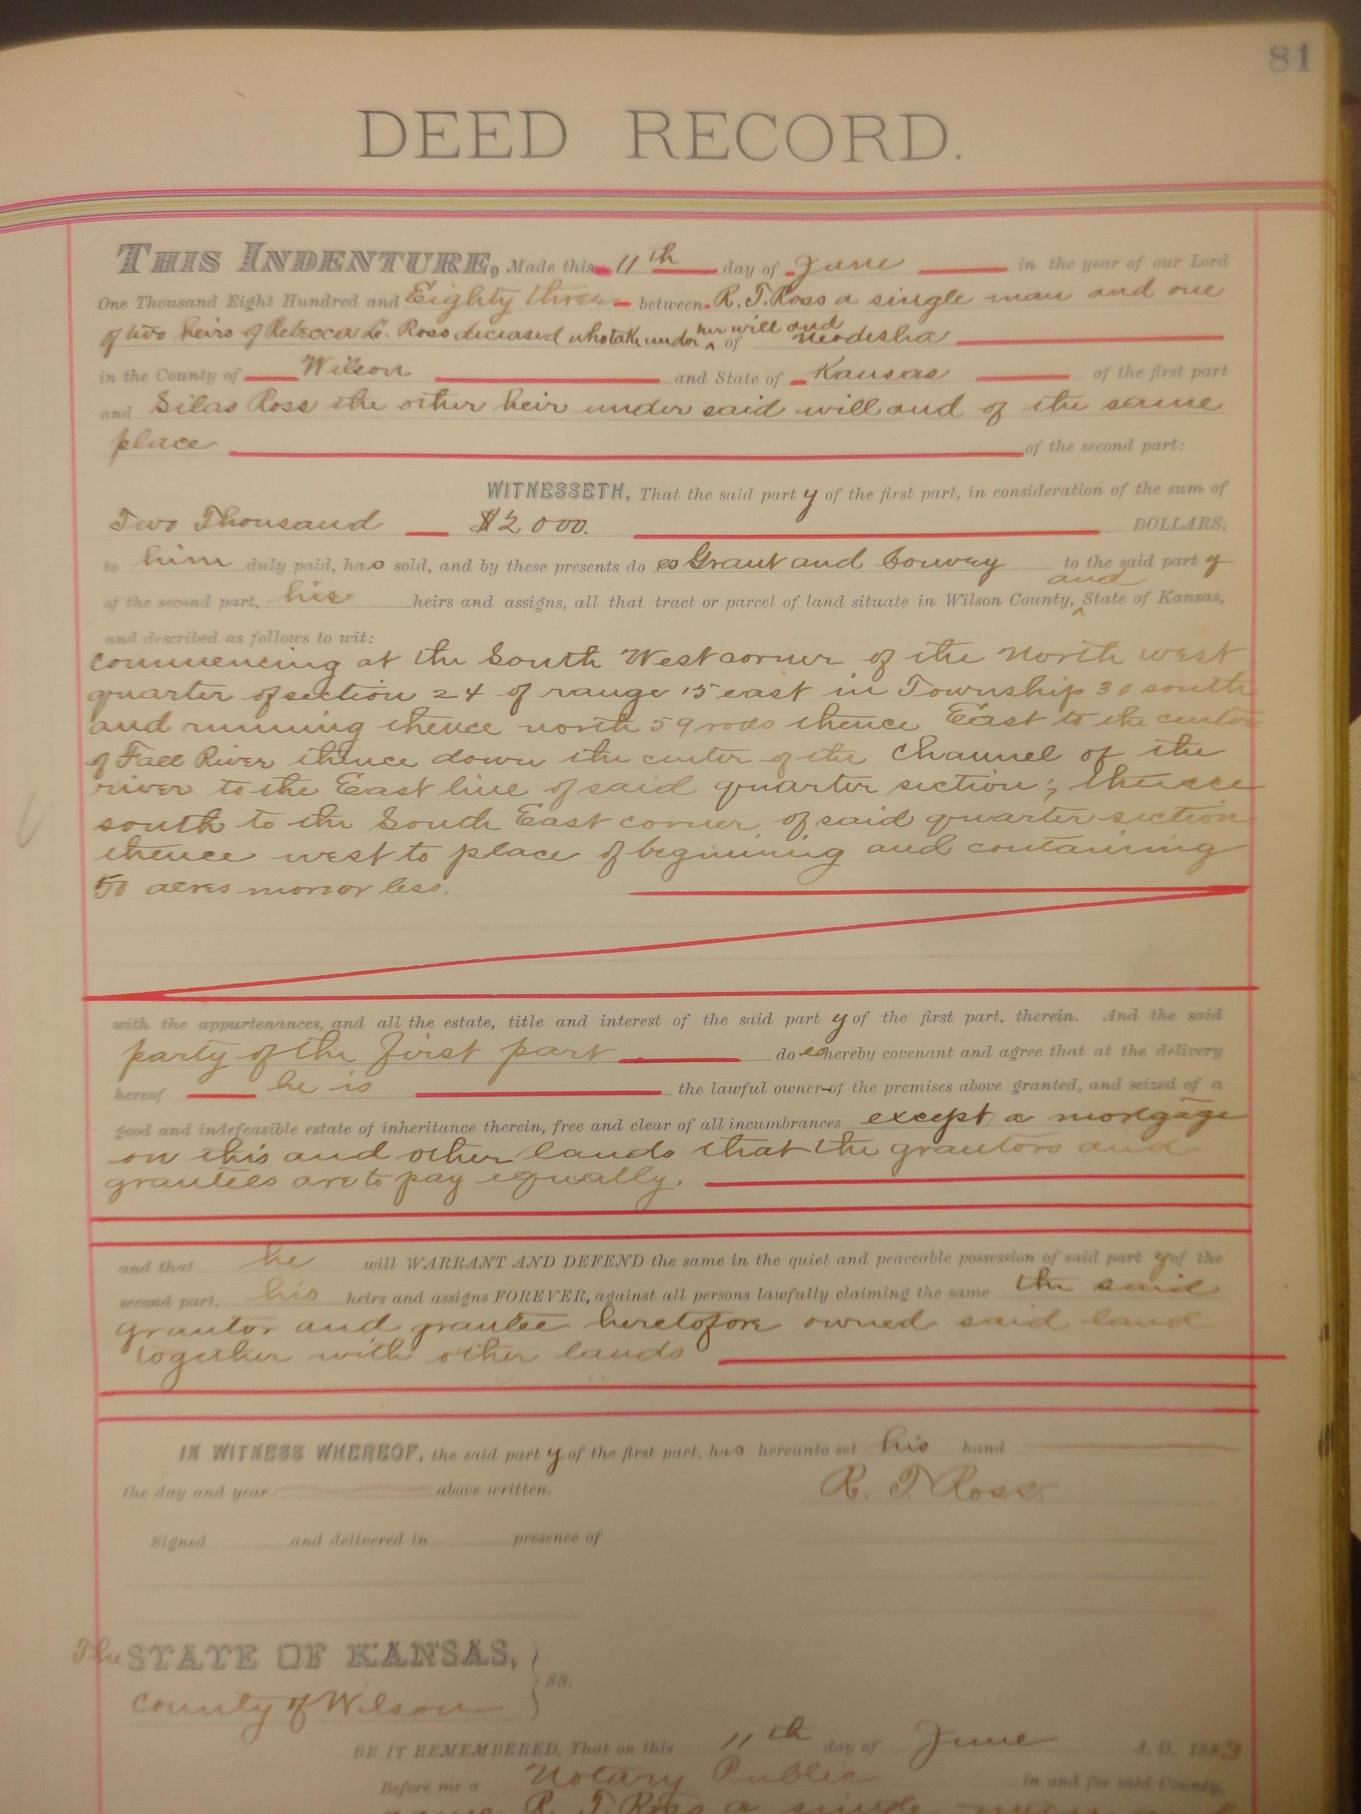 81
DEED RECORD.
THIS INDENTURE, Made this 11th day of June in the year of our Lord
One Thousand Eight Hundred and Eighty three between R. T. Ross a single man and one
of two heirs of Rebecca L. Ross deceased who take under ^ her will and of Neodisha
in the County of Wilson and State of Kansas of the first part
and Silas Ross the other heir under said will and of the same
place of the second part:
WITNESSETH, That the said part y of the first part, in consideration of the sum of
Two Thousand $2000. DOLLARS,
to him duly paid, has sold, and by these presents do es Grant and Convey to the said part y
of the second part, his heirs and assigns, all that tract or parcel of land situate in Wilson County, ^ and State of Kansas,
and described as follows to wit:
commencing at the South West corner of the North west
quarter of section 24 of range 15 east in Township 30 south
and running thence north 59 rods thence East to the center
of Fall River thence down the center of the Channel of the
river to the East line of said quarter section; thence
south to the South East corner of said quarter section
thence west to place of beginning and containing
50 acres more or less.
with the appurtenances, and all the estate, title and interest of the said part y of the first part, therein. And the said
party of the first part do es hereby covenant and agree that at the delivery
hereof he is the lawful owner of the premises above granted, and seized of a
good and indefeasible estate of inheritance therein, free and clear of all incumbrances except a mortgage
on this and other lands that the grantors and
grantees are to pay equally.
and that he will WARRANT AND DEFEND the same in the quiet and peaceable possession of said part y of the
second part, his heirs and assigns FOREVER, against all persons lawfully claiming the same the said
grantor and grantee heretofore owned said land
together with other lands
IN WITNESS WHEREOF, the said part y of the first part, has hereunto set his hand
the day and year above written. R. T. Ross
Signed and delivered in presence of
The STATE OF KANSAS, } ss.
County of Wilson
BE IT REMEMBERED, That on this 11th day of June A. D. 1883
Before me a Notary Public in and for said County,
came R. T. Ross a single man